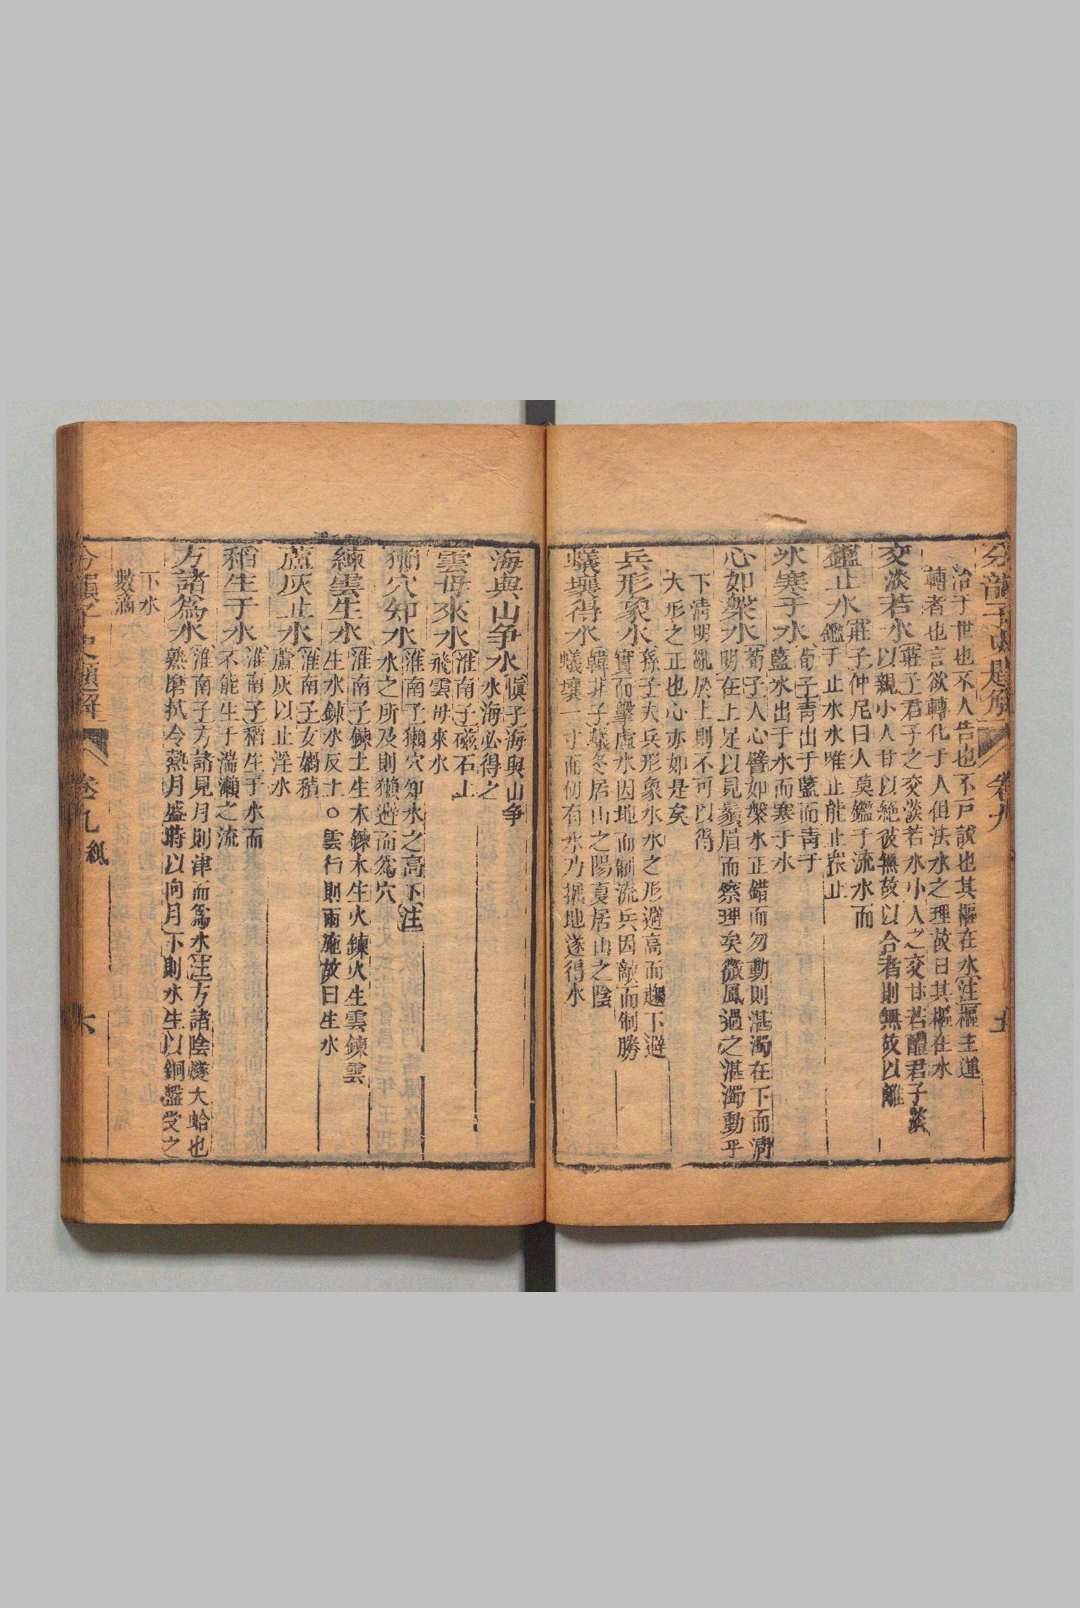 治于世也不人告也不戶說也其樞在水注樞主運
轉者也言欲轉化于人但法水之理故曰其樞在水
交淡若水 莊子君子之交淡若水小人之交甘若醴君子淡
以親小人甘以絶彼無故以合者則無故以離
鑑止水 莊子仲尼曰人莫鑑于流水而
鑑于止水水唯止能止衆止
氷寒于水 荀子青出于藍而青于
藍氷出于水而寒于水
心如槃水 荀子人心譬如槃水正錯而勿動則湛濁在下而清
明在上足以見鬚眉而察理矣微風過之湛濁動乎
下清明亂於上則不可以得
大形之正也心亦如是矣
兵形象水 孫子夫兵形象水水之形避高而趨下兵之形避
實而擊虛水因地而制流兵因敵而制勝
蟻壤得水 韓非子蟻冬居山之陽夏居山之陰
蟻壤一寸而仞有水乃掘地遂得水
海與山争水 愼子海與山争
水海必得之
雲母來水 淮南子磁石上
飛雲母來水
獺穴知水 淮南子獺穴知水之高下注
水之所及則獺避而爲穴
練雲生水 淮南子鍊土生木鍊木生火鍊火生雲鍊雲
生水鍊水反土○雲行則雨施故曰生水
蘆灰止水 淮南子女媧積
蘆灰以止淫水
稻生于水 淮南子稻生于水而
不能生于湍瀨之流
方諸爲水 淮南子方諸見月則津而爲水注方諸陰燧大蛤也
熟磨拭令熱月盛時以向月下則水生以銅盤受之
下水
數滴
卷九 六